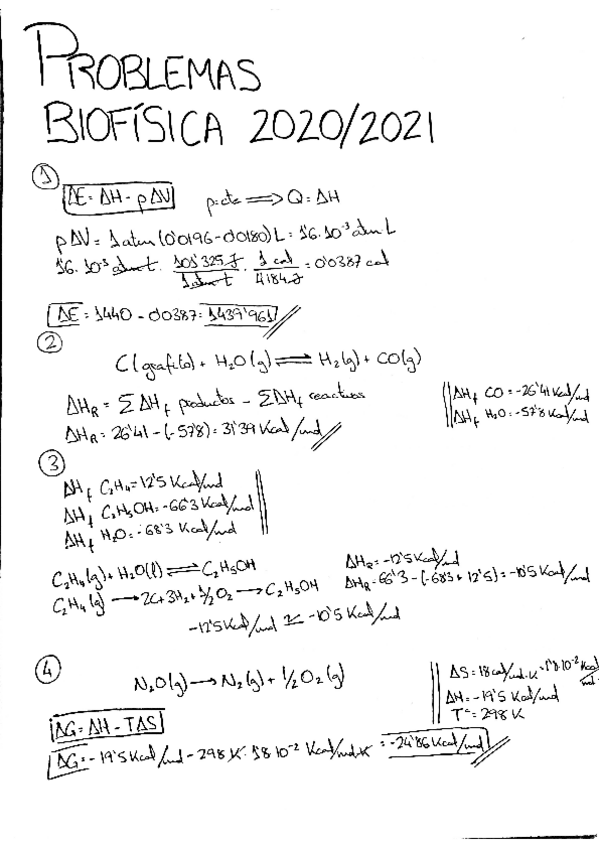 PROBLEMAS
BIOFÍSICA 2020/2021
1
ΔE = ΔH - pΔV p=cte ⟹ Q = ΔH
pΔV = 1 atm (0'0196 - 0'0180) L = 1'6·10⁻³ atm L
1'6·10⁻³ atm L · 101'325 J / 1 atm L · 1 cal / 4'184 J = 0'0387 cal
ΔE = 1440 - 0'0387 = 1439'961
2
C(grafito) + H₂O(g) ⇌ H₂(g) + CO(g)
ΔH_R = ΣΔH_f productos - ΣΔH_f reactivos
ΔH_f CO = -26'41 Kcal/mol
ΔH_f H₂O = -57'8 Kcal/mol
ΔH_R = 26'41 - (-57'8) = 31'39 Kcal/mol
3
ΔH_f C₂H₄ = 12'5 Kcal/mol
ΔH_f C₂H₅OH = -66'3 Kcal/mol
ΔH_f H₂O = -68'3 Kcal/mol
C₂H₄(g) + H₂O(l) ⇌ C₂H₅OH
ΔH_R = -12'5 Kcal/mol
ΔH_R = 66'3 - (-68'3 + 12'5) = -10'5 Kcal/mol
C₂H₄(g) ⟶ 2C + 3H₂ + ½O₂ ⟶ C₂H₅OH
-12'5 Kcal/mol -10'5 Kcal/mol
4
N₂O(g) ⟶ N₂(g) + ½O₂(g)
ΔS = 18 cal/mol·K = 1'8·10⁻² Kcal/mol·
ΔH = -19'5 Kcal/mol
Tª = 298 K
ΔG = ΔH - TΔS
ΔG = -19'5 Kcal/mol - 298 K · 1'8 10⁻² Kcal/mol·K = -24'86 Kcal/mol